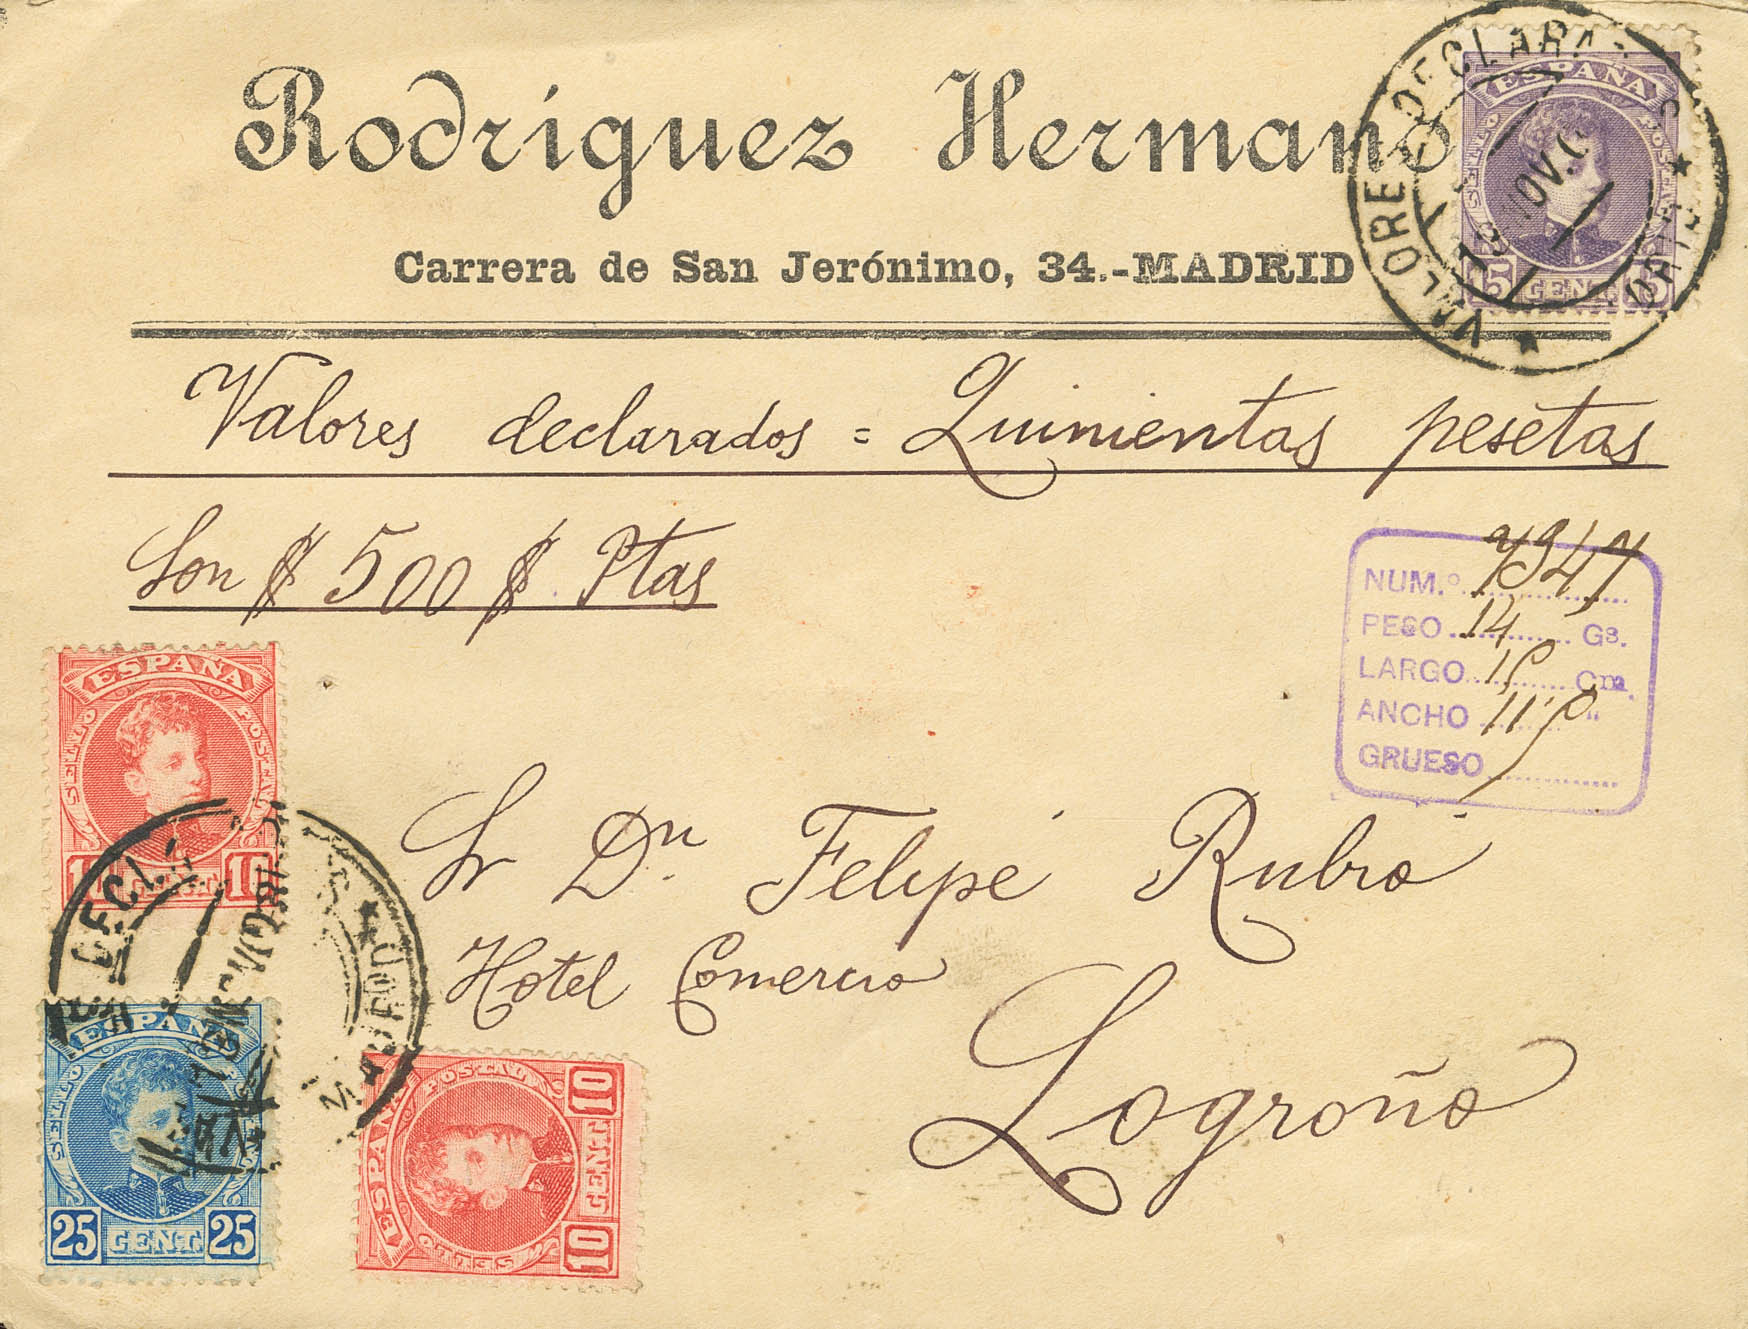 Rodríguez Hermano
Carrera de San Jerónimo, 34.-MADRID
VALORES DECLARA
MADRID
NOV.
ESPAÑA
SELLO POSTAL
15 CENT. 15
Valores declarados = Quinientas pesetas
Son $ 500 $ Ptas
NUM.º 7347
PESO 14 Gs.
LARGO 15 Cm.
ANCHO 11'5 "
GRUESO
ESPAÑA
SELLO POSTAL
10 CENT. 10
Sr Dn. Felipe Rubio
Hotel Comercio
Logroño
DECLA
MADRID
ESPAÑA
SELLO
25 CENT. 25
ESPAÑA
SELLO POSTAL
10 CENT 10